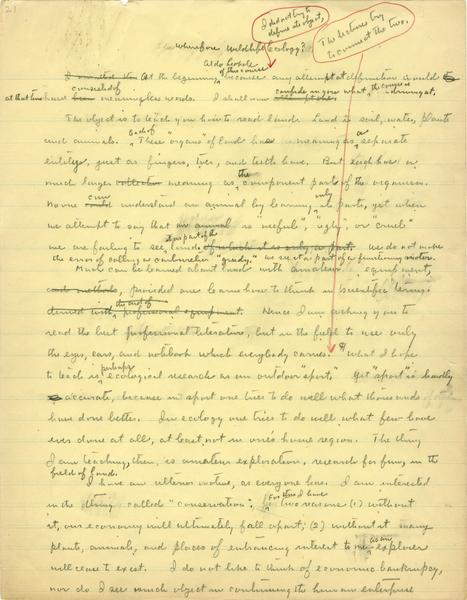 21
I did not try to
define its object,
The lectures try
to connect the two.
Wherefore Wildlife Ecology?
Aldo Leopold
of this course
At the beginning because any attempt at definition would
consisted of confide in you what the course is
at that time have meaningless words. I shall now driving at.
The object is to teach you how to read land. Land is soil, water, plants
each of a
and animals. These "organs" of land has meaning as separate
entity, just as fingers, toes, and teeth have. But each has a
the
much larger meaning as component parts of the organism.
can only
No one understand an animal by learning its parts, yet when
we attempt to say that an animal is "useful", ugly, or "cruel"
as part of the
we are failing to see land. We do not make
the error of calling a carburetor "greedy." We see it as part of a functioning motor.
Much can be learned about land with amateur equipment,
provided one learns how to think in scientific terms.
Hence I am asking you to
read the best professional literature, but in the field to use only
the eyes, ears, and notebook which everybody carries. What I hope
perhaps
to teach is ecological research as an outdoor "sport." Yet "sport" is hardly
accurate, because in sport one tries to do well what thousands
have done better. In ecology one tries to do well what few have
ever done at all, at least not in one's home region. The thing
I am teaching, then, is amateur exploration, research for fun, in the
field of land.
I have an ulterior motive, as everyone has. I am interested
For this I have
in the thing called "conservation". two reasons (1) without
it, our economy will ultimately fall apart; (2) without it many
plants, animals, and places of entrancing interest to me as an explorer
will cease to exist. I do not like to think of economic bankruptcy,
nor do I see much object in continuing the human enterprise